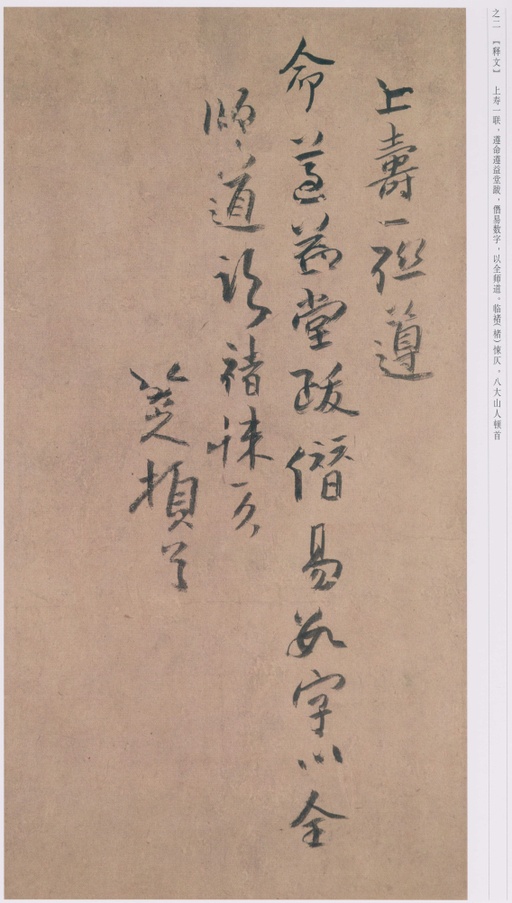 之二 【释文】 上寿一联、遵命遵益堂跋、僭易数字，以全师道。临褚（楮）悚仄。八大山人顿首
上壽一聯遵
命遵益堂跋僭易數字以全
師道臨褚悚仄
八大山人頓首